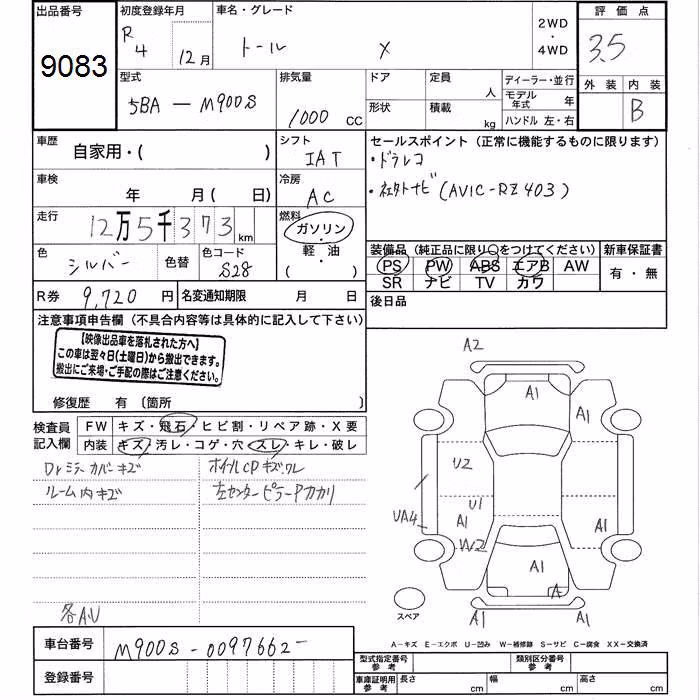 出品番号
9083
初度登録年月
R 4 12月
車名・グレード
トール X
2WD・4WD
評価点
3.5
型式
5BA — M900S
排気量
1000 CC
ドア
形状
定員 人
積載 kg
ディーラー・並行
モデル年式 年
ハンドル 左・右
外装 内装
B
車歴
自家用・( )
シフト
IAT
セールスポイント(正常に機能するものに限ります)
・ドラレコ
・社外ナビ(AVIC-RZ403)
車検
年 月( 日)
冷房
AC
走行
12万5千373km
燃料
ガソリン・軽・油
( )
色
シルバー
色替
色コード
S28
装備品(純正品に限り○をつけてください)
PS PW ABS エアB AW
SR ナビ TV カワ
新車保証書
有・無
R券 9,720 円
名変通知期限 月 日
後日品
注意事項申告欄(不具合内容等は具体的に記入して下さい)
【映像出品車を落札された方へ】
この車は翌々日(土曜日)から搬出できます。
搬出にご来場・ご手配の際はご注意ください。
修復歴 有〔箇所 〕
検査員記入欄
FW キズ・飛石・ヒビ割・リペア跡・X要
内装 キズ・汚レ・コゲ・穴・スレ・キレ・破レ
Drミラーカバーキズ
ホイルCPキズ、ワレ
ルーム内キズ
左センターピラーアカカリ
各A.U
A2
A1
A1
U2
U1
UA4
A1
A1
W2
A1
A
A1
A1
スペア
A－キズ E－エクボ U－凹み W－補修跡 S－サビ C－腐食 XX－交換済
車台番号
M900S-0097662-
登録番号
型式指定番号 参考
類別区分番号 参考
車庫証明用 参考
長さ cm
幅 cm
高さ cm